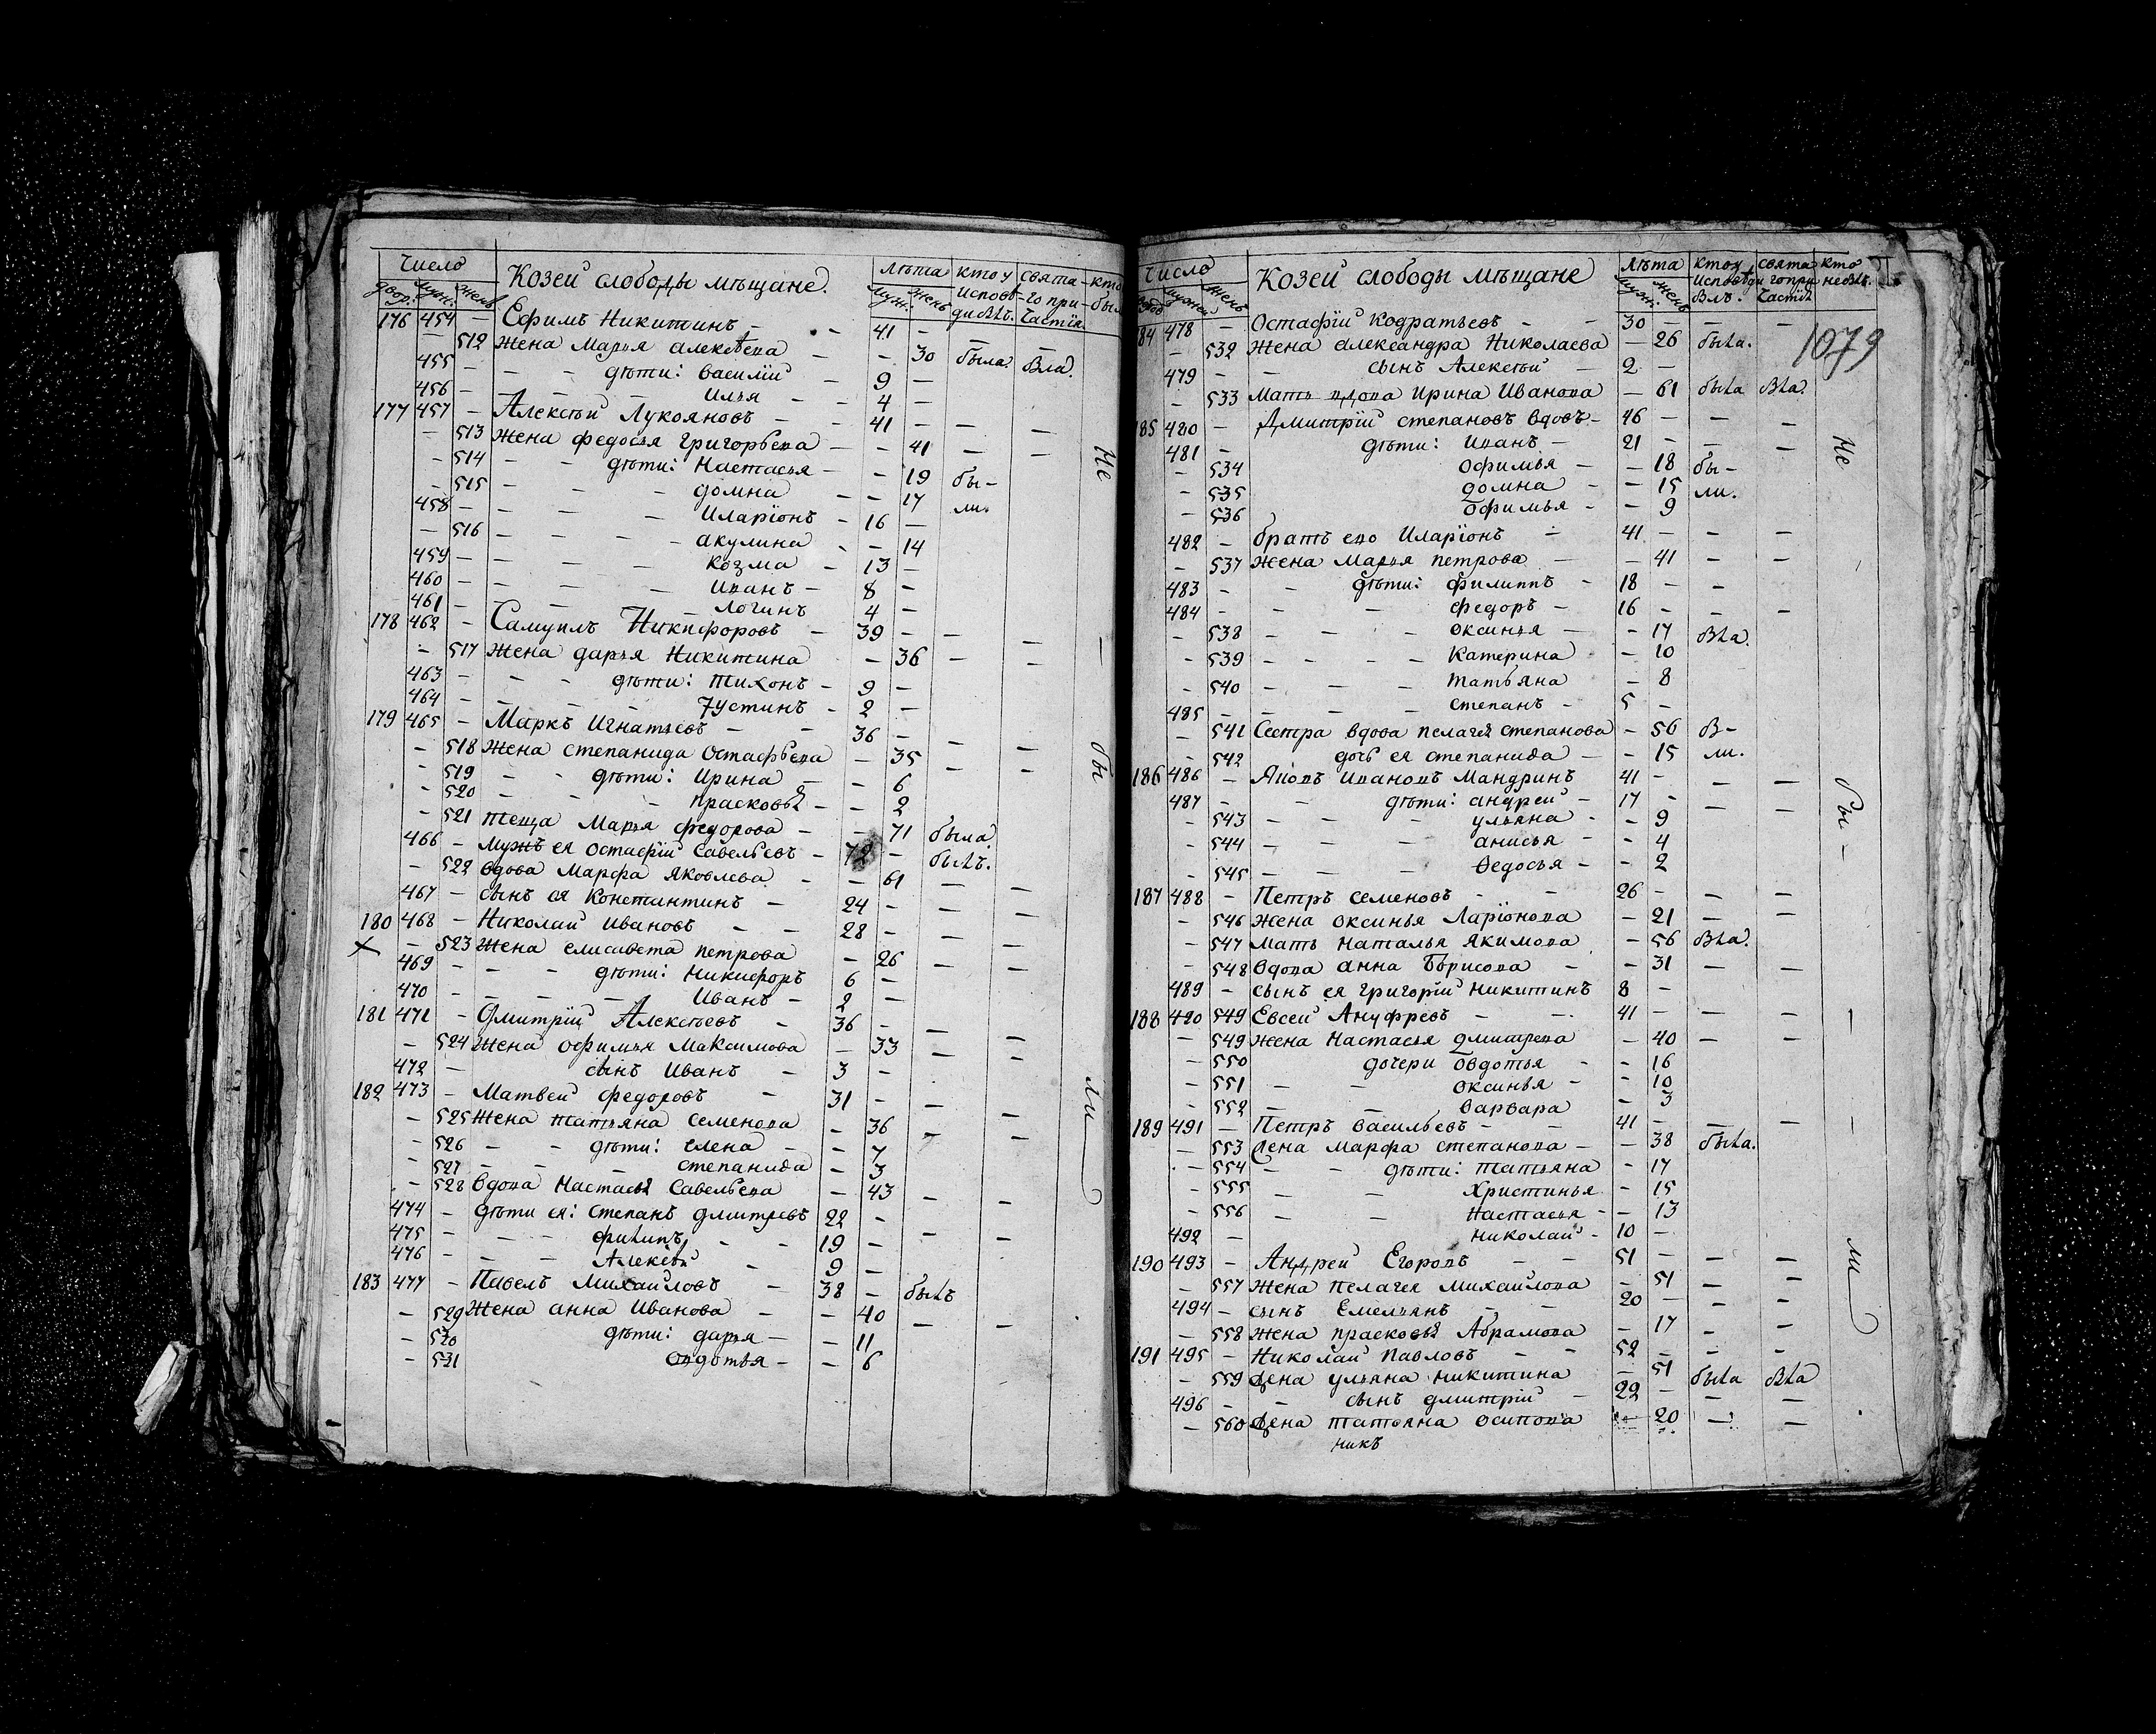 Число Козей слободы мѣщане. лѣта кто у свята- кто
двор. муж. женъ муж. женъ исповѣ- го при- был
ди былъ. частїя.
176 454 — Ефимъ Никитинъ - - 41 — — —
— 512 Жена Марья алексѣева — — 30 была. Бла.
455 — — - дѣти: василїй — 9 —
456 — — — Илья — — 4 —
177 457 — Алексѣй Лукояновъ — — 41 — — —
— 513 Жена федосья григорьева — — 41 — —
— 514 — - дѣти: Настасья — — 19 бы-
— 515 — — — домна — — 17 ли.
458 — — — — Иларїонъ — 16 —
— 516 — — — акулина - — 14
459 — — — — козма — 13 —
460 — — — Иванъ — 8 —
461 — — — Логинъ 4 —
178 462 — Самуилъ Никифоровъ — 39 — — —
— 517 Жена дарья Никитина — 36 — —
463 — — - дѣти: тихонъ — 9 —
464 — — — устинъ — 2 —
179 465 — Маркъ Игнатьевъ — — 36 — — —
— 518 Жена степанида Остафьева — 35 — —
— 519 — - дѣти: Ирина — — 6
— 520 — — — прасковья — — 2
— 521 теща Марья федорова — — 71 была
466 — мужъ ея Остафїй Савельевъ — 72 — былъ.
— 522 вдова Марфа Яковлева — — 61 — —
467 — сынъ ея Константинъ — 24 — — —
180 468 — Николай Ивановъ — — 28 — — —
х — 523 Жена елисавета петрова — 26 — —
469 — — - дѣти: Никифоръ 6 —
470 — — — — Иванъ — 2 —
181 471 — Дмитрїй Алексѣевъ — 36 — — —
— 524 Жена офимья Максимова — 33 — —
472 — сынъ Иванъ — 3 —
182 473 — Матвей федоровъ — 31 — — —
— 525 Жена татьяна семенова — 36 — —
— 526 — — дѣти: елена — — 7
— 527 — — — степанида — 3
— 528 вдова Настасья Савельева — 43 — —
474 — дѣти ея: степанъ дмитревъ 22 — — —
475 — — — филипъ — — 19 —
476 — — — Алексѣй — 9 —
183 477 — Павелъ Михайловъ — 38 — былъ
— 529 Жена анна Иванова — — 40 — —
— 530 дѣти: дарья — — 11
— 531 овдотья — — 6
Не — бы ли
Число Козей слободы мѣщане лѣта кто у свята кто
муж. женъ муж. женъ исповѣди го при небылъ.
былъ. частїя
1079
184 478 — Остафїй кодратьевъ — — 30 — — —
— 532 Жена александра Николаева — 26 была.
479 — — сынъ Алексѣй — 2 —
— 533 Мать вдова Ирина Иванова — 61 была Бла.
185 480 — Дмитрїй степановъ вдовъ — 46 — — —
481 — дѣти: Иванъ — 21 — — —
— 534 офимья — — 18 бы-
— 535 домна — — 15 ли.
— 536 Офимья — — 9
482 — братъ ево Иларїонъ — 41 — — —
— 537 Жена Марья петрова — — 41 — —
483 — — дѣти: филиппъ — 18 — —
484 — — — федоръ — 16 — — —
— 538 — — — оксинья — — 17 Бла.
— 539 — — — — катерина — 10
— 540 — — — татьяна — 8
485 — — — — степанъ — 5 —
— 541 Сестра вдова пелагея степанова — 56 б-
— 542 дочь ея степанида — — 15 ли.
186 486 — Яковъ Ивановъ Мандринъ 41 — — —
487 — — дѣти: андрей — 17 — — —
— 543 — — — ульяна — — 9
— 544 — — — анисья — - 4
— 545 — — — Федосья — — 2
187 488 — Петръ семеновъ — — 26 — — —
— 546 Жена оксинья Ларїонова — 21 — —
— 547 Мать Наталья Якимова — 56 Бла.
— 548 вдова анна Борисова — — 31 — —
489 — сынъ ея григорїй никитинъ 8 —
188 490 549 Евсей Ануфревъ — — 41 — — —
— 549 Жена Настасья дмитрева — 40 — —
— 550 дочери Овдотья — — 16
— 551 — — оксинья — — 10
— 552 — — варвара — 3
189 491 — Петръ васильевъ — — 41 — — —
— 553 Жена Марфа степанова — — 38 была.
— 554 — — дѣти: татьяна — 17
— 555 — — Христинья — 15
— 556 — — настасья — — 13
492 — николай — 10 —
190 493 — Андрей Егоровъ — — 51 — — —
— 557 Жена пелагея михайлова — 51 — —
494 — сынъ Емельянъ — — 20 — — —
— 558 Жена прасковья Абрамова — 17 — —
191 495 — Николай павловъ — — 52 — — —
— 559 Жена ульяна никитина — 51 была Бла
496 — — сынъ дмитрїй — 22 — — —
— 560 Жена татьяна осипова — 20 — —
никъ
Не бы — ли